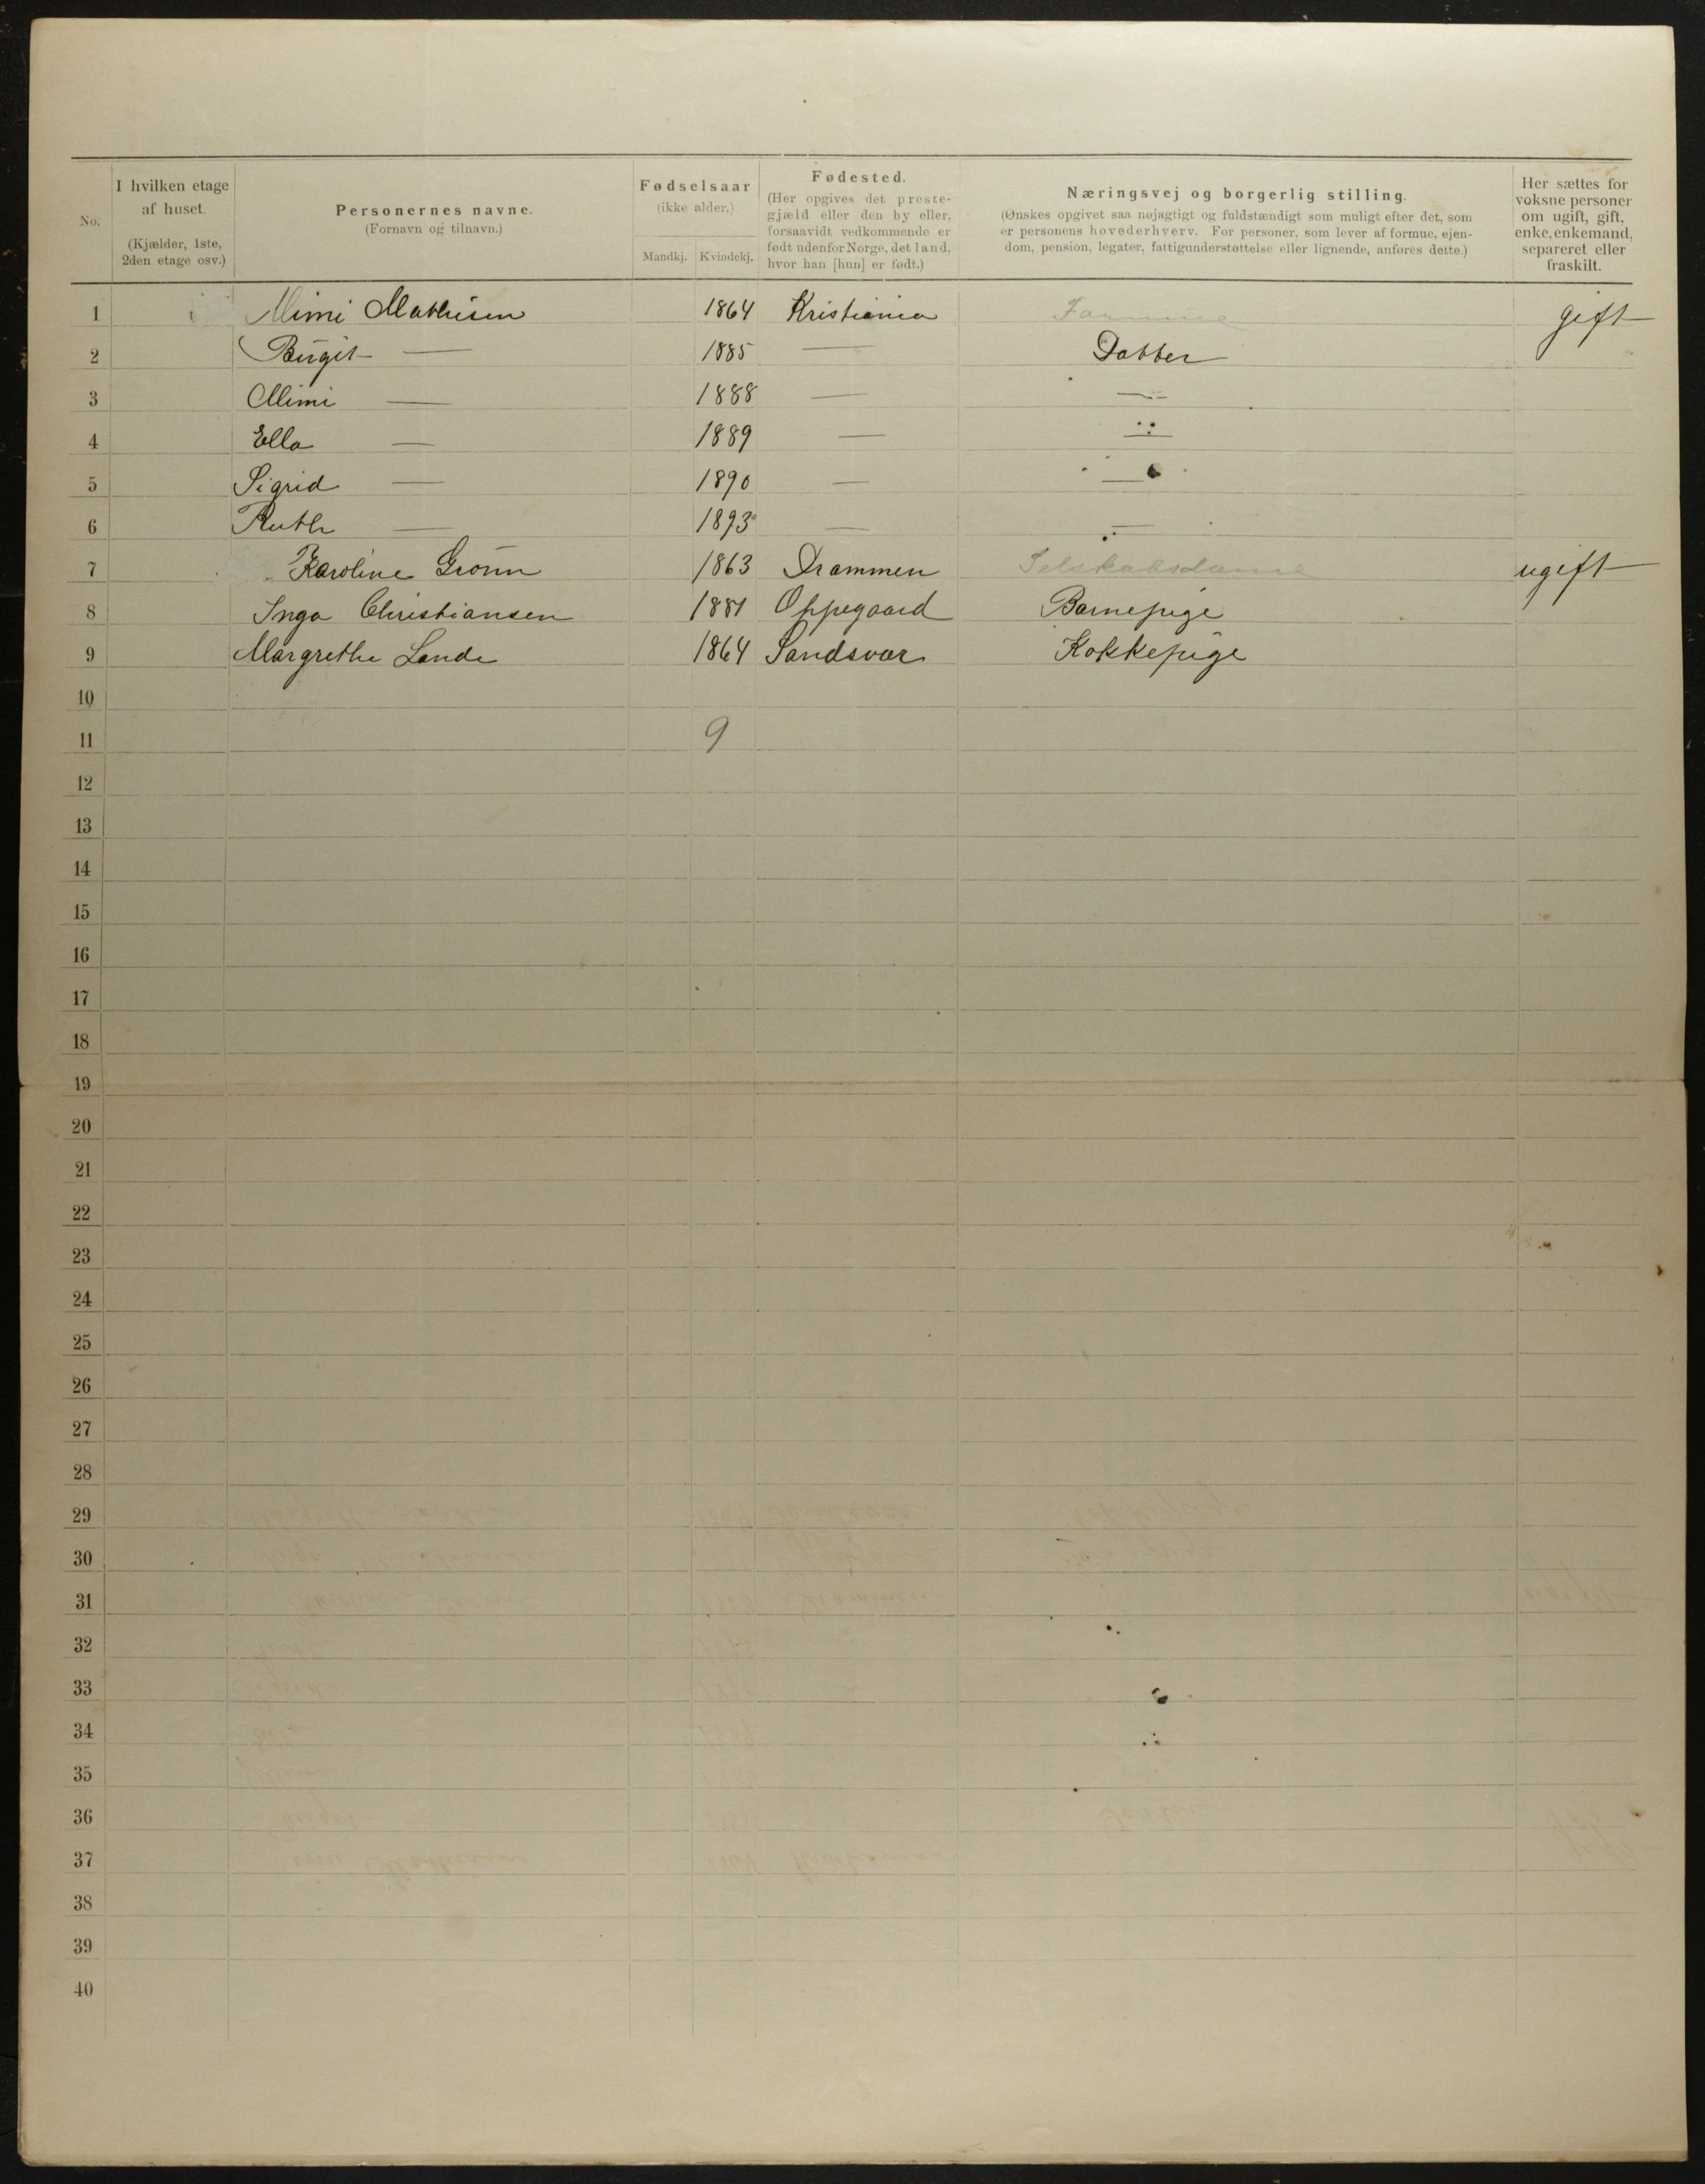 No.
I hvilken etage
af huset.
(Kjælder, 1ste,
2den etage osv.)
Personernes navne.
(Fornavn og tilnavn.)
Fødselsaar
(ikke alder.)
Mandkj. Kvindekj.
Fødested.
(Her opgives det preste-
gjæld eller den by eller,
forsaavidt vedkommende er
født udenfor Norge, det land,
hvor han [hun] er født.)
Næringsvej og borgerlig stilling.
(Ønskes opgivet saa nøjagtigt og fuldstændigt som muligt efter det, som
er personens hovederhverv. For personer, som lever af formue, ejen-
dom, pension, legater, fattigunderstøttelse eller lignende, anføres dette.)
Her sættes for
voksne personer
om ugift, gift,
enke, enkemand,
separeret eller
fraskilt.
1 Mimi Mathisen 1864 Kristiania gift
2 Birgit — 1885 — Datter
3 Mimi — 1888 — —
4 Ella — 1889 — —
5 Sigrid — 1890 — —
6 Ruth — 1893 — —
7 Karoline Grønn 1863 Drammen Selskabsdame ugift
8 Inga Christiansen 1881 Oppegaard Barnepige
9 Margrethe Lande 1864 Sandsvær Kokkepige
10
11 9
12
13
14
15
16
17
18
19
20
21
22
23
24
25
26
27
28
29
30
31
32
33
34
35
36
37
38
39
40